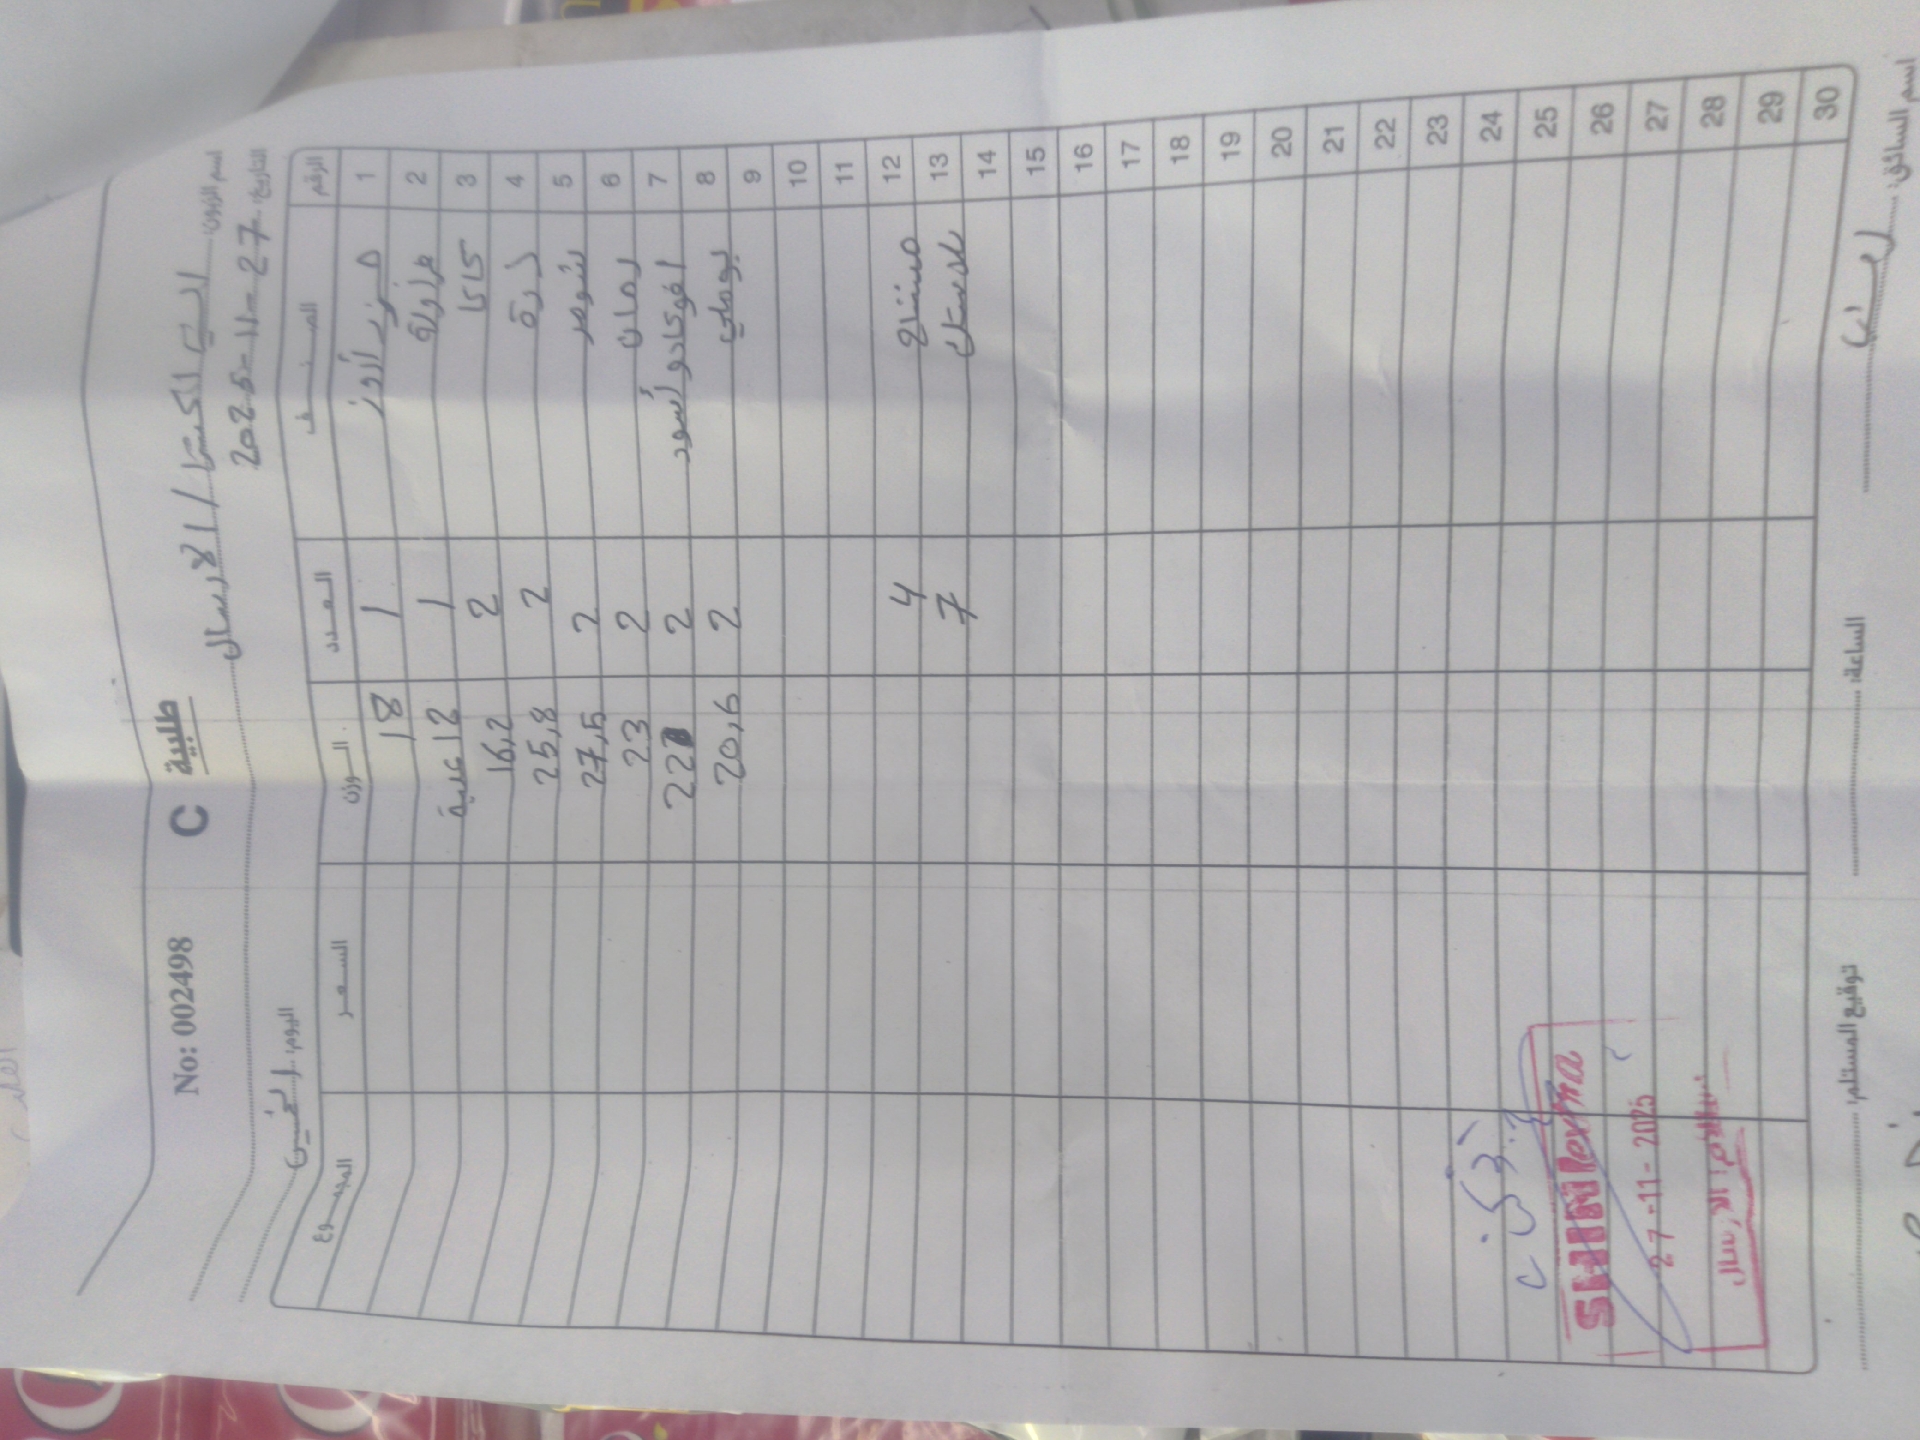 No: 002498 C طلبية
اسم الزبون: السيد اكستا / الارسال
التاريخ: 2025-11-27 اليوم: الخميس
الرقم الصنف العدد الوزن السعر المجموع
1 موز 1 18
2 فراولة 1 12 علبة
3 كاكا 2 16,2
4 درة 2 25,8
5 شومر 2 27,5
6 رمان 2 23
7 افوكادو أسود 2 22
8 بوملي 2 20,6
9
10
11
12 مشتاح 4
13 بلاستك 7
14
15
16
17
18
19
20
21
22
23
24
25
26
27
28
29
30
27-11-2025
استلام: الارسال
اسم السائق: الساعة: توقيع المستلم: